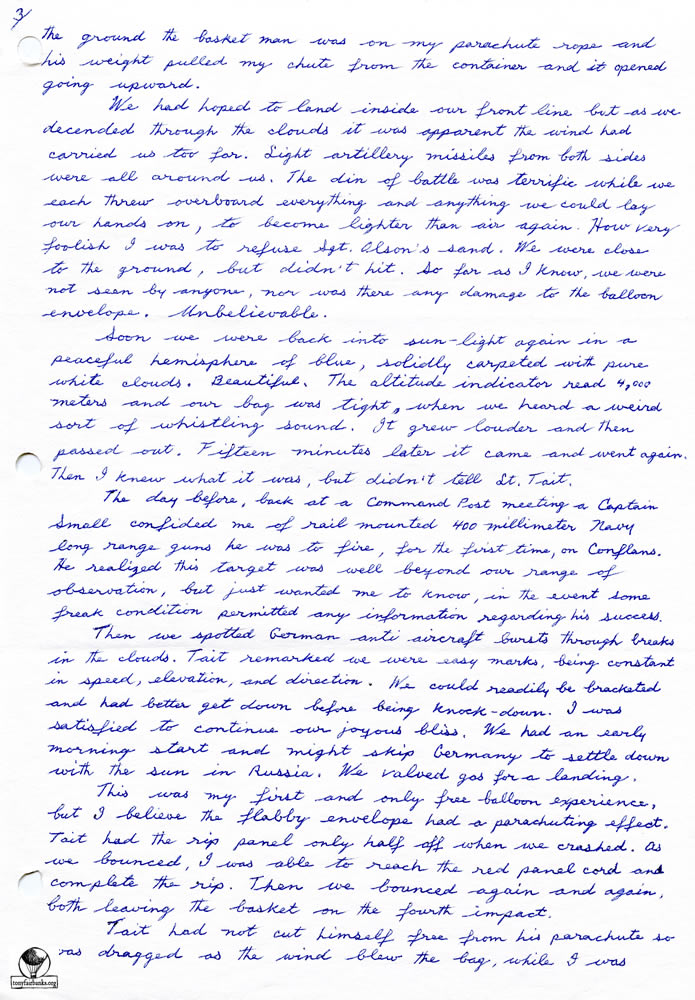 3/
the ground the basket man was on my parachute rope and
his weight pulled my chute from the container and it opened
going upward.
We had hoped to land inside our front line but as we
decended through the clouds it was apparent the wind had
carried us too far. Light artillery missiles from both sides
were all around us. The din of battle was terrific while we
each threw overboard everything and anything we could lay
our hands on, to become lighter than air again. How very
foolish I was to refuse Sgt. Olson's sand. We were close
to the ground, but didn't hit. So far as I know, we were
not seen by anyone, nor was there any damage to the balloon
envelope. Unbelievable.
Soon we were back into sun-light again in a
peaceful hemisphere of blue, solidly carpeted with pure
white clouds. Beautiful. The altitude indicator read 4,000
meters and our bag was tight, when we heard a weird
sort of whistling sound. It grew louder and then
passed out. Fifteen minutes later it came and went again.
Then I knew what it was, but didn't tell Lt. Tait.
The day before, back at a Command Post meeting a Captain
Small confided me of rail mounted 400 millimeter Navy
long range guns he was to fire, for the first time, on Conflans.
He realized this target was well beyond our range of
observation, but just wanted me to know, in the event some
freak condition permitted any information regarding his success.
Then we spotted German anti aircraft bursts through breaks
in the clouds. Tait remarked we were easy marks, being constant
in speed, elevation, and direction. We could readily be bracketed
and had better get down before being knock-down. I was
satisfied to continue our joyous bliss. We had an early
morning start and might skip Germany to settle down
with the sun in Russia. We valved gas for a landing.
This was my first and only free balloon experience,
but I believe the flabby envelope had a parachuting effect.
Tait had the rip panel only half off when we crashed. As
we bounced, I was able to reach the red panel cord and
complete the rip. Then we bounced again and again,
both leaving the basket on the fourth impact.
Tait had not cut himself free from his parachute so
was dragged as the wind blew the bag, while I was
tonyfairbanks.org